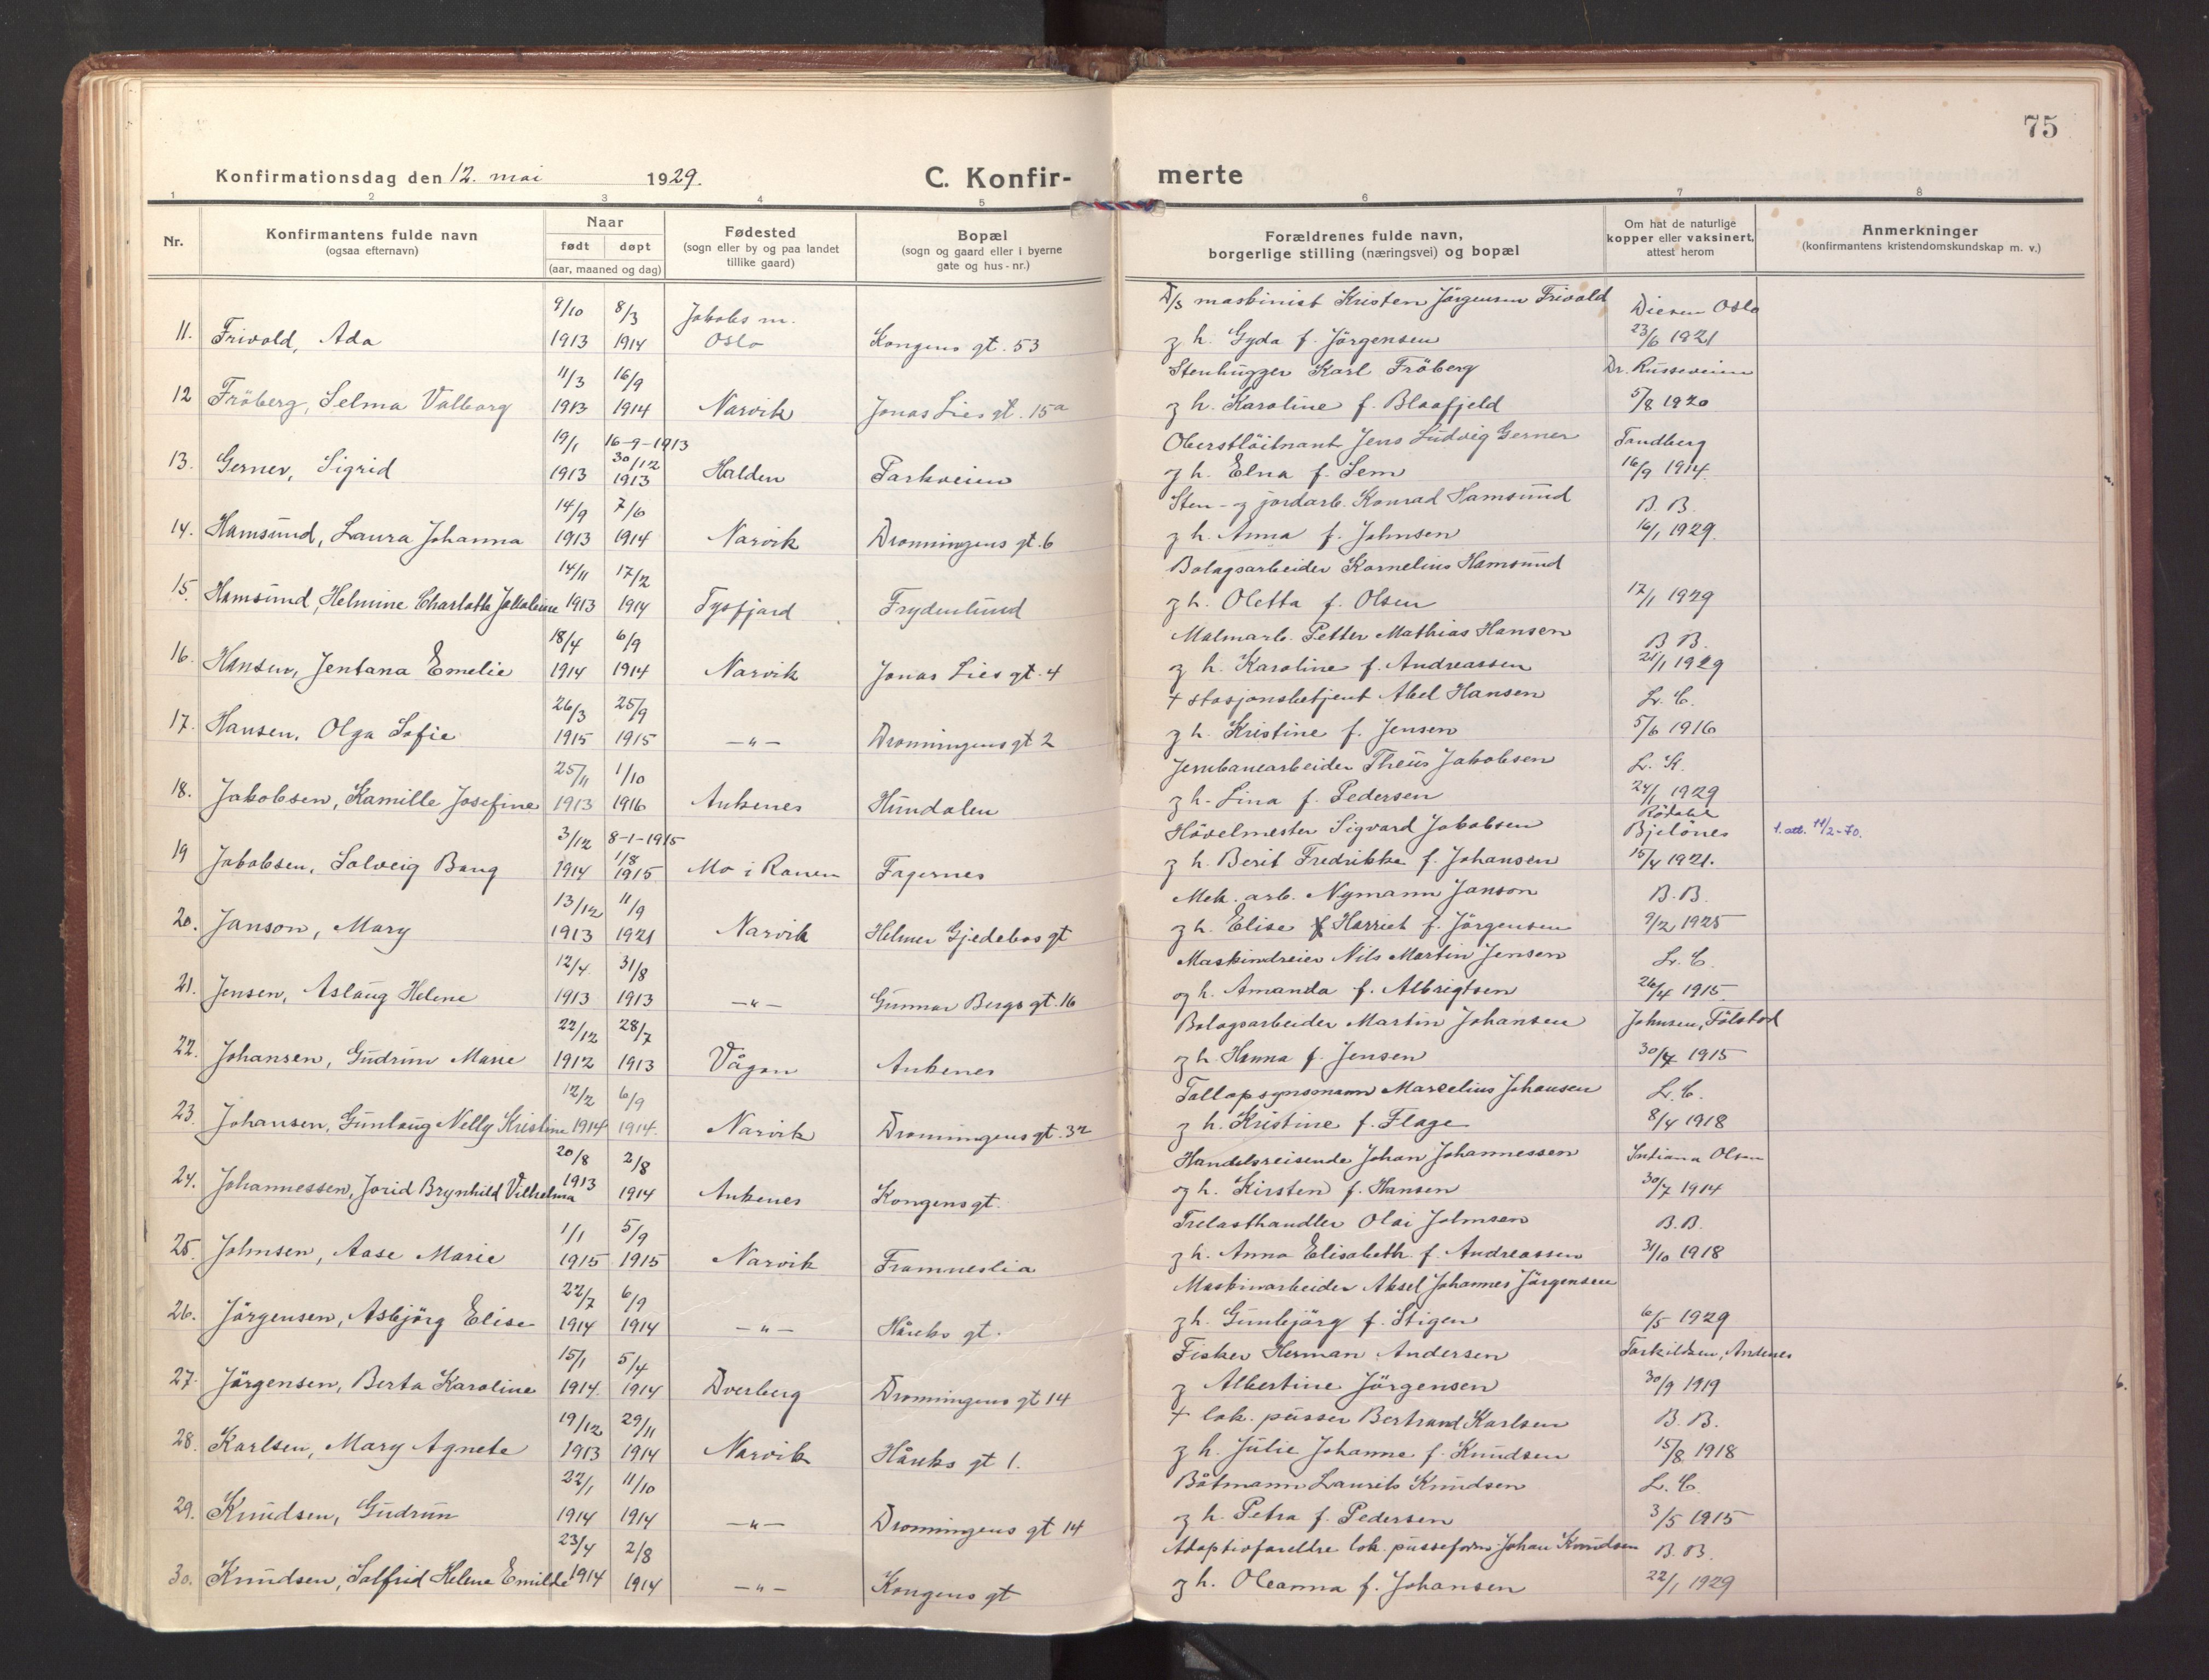 75
Konfirmationsdag den 12. mai 1929.
C. Konfirmerte
1 2 3 4 5 6 7 8
Nr.
Konfirmantens fulde navn
(ogsaa efternavn)
Naar
født døpt
(aar, maaned og dag)
Fødested
(sogn eller by og paa landet
tillike gaard)
Bopæl
(sogn og gaard eller i byerne
gate og hus-nr.)
Forældrenes fulde navn,
borgerlige stilling (næringsvei) og bopæl
Om hat de naturlige
kopper eller vaksinert,
attest herom
Anmerkninger
(konfirmantens kristendomskundskap m. v.)
9/10 8/3 Jakobs m. D/s maskinist Kristen Jörgensen Frivold Oslo
11. Frivold, Ada 1913 1914 Oslo Kongens gt. 53 g h. Gyda f. Jörgensen 23/6 1921
11/3 16/9 Stenhugger Karl Fröberg Dr.
12 Fröberg, Selma Valborg 1913 1914 Narvik Jonas Lies gt. 15a g h. Karoline f. Blaafjeld 5/8 1920
19/1 16-9-1913 Oberstlöitnant Jens Ludvig Gerner Tandberg
13. Gerner, Sigrid 1913 30/12 1913 Halden Parkveien g h. Elna f. Sem 16/9 1914.
14/9 7/6 Sten- g jordarb. Konrad Hamsund B. B.
14. Hamsund, Laura Johanna 1913 1914 Narvik Dronningens gt. 6 g h. Anna f. Johnsen 16/1 1929.
14/11 17/2 Bolagsarbeider Kornelius Hamsund
15. Hamsund, Helmine Charlotte Jakobine 1913 1914 Tysfjord Frydenlund g h. Oletta f. Olsen 17/1 1929
18/4 6/9 Malmarb. Petter Mathias Hansen B. B.
16. Hansen, Jentana Emelie 1914 1914 Narvik Jonas Lies gt. 4 g h. Karoline f. Andreassen 21/1 1929
26/3 25/9 + stasjonsbetjent Abel Hansen L. C.
17. Hansen, Olga Sofie 1915 1915 —"— Dronningens gt 2 g h. Kristine f. Jensen 5/6 1916
25/11 1/10 Jernbanearbeider Theus Jakobsen L. K.
18. Jakobsen, Kamille Josefine 1913 1916 Ankenes Hundalen g h. Lina f. Pedersen 24/1 1929
3/12 8-1-1915 Hövelmester Sigvard Jakobsen Bjelönes 1. att. 11/2-70.
19 Jakobsen, Solveig Bang 1914 1/8 1915 Mo i Ranen Fagernes g h. Berit Fredrikke f. Johansen 15/4 1921.
13/12 11/9 Mek. arb. Nymann Janson B. B.
20. Janson, Mary 1913 1921 Narvik Helmer Gjedebos gt g h. Elise Harriet f. Jörgensen 9/2 1925
12/4 31/8 Maskindreier Nils Martin Jensen L. C.
21. Jensen, Aslaug Helene 1913 1913 —"— Gunnar Bergs gt. 16 og h. Amanda f. Albrigtsen 26/4 1915
22/12 28/7 Bolagsarbeider Martin Johansen Johnsen,
22. Johansen, Gudrun Marie 1912 1913 Vågan Ankenes g h. Hanna f. Jensen 30/4 1915
12/2 6/9 Tollopsynsmann Marcelius Johansen L. C.
23. Johansen, Gunlaug Nelly Kristine 1914 1914. Narvik Dronningens gt. 32 g h. Kristine f. Flage 8/4 1918
20/8 2/8 Handelsreisende Johan Johannessen Intiana Olsen
24. Johannessen, Jorid Brynhild Vilhelma 1913 1914 Ankenes Kongens gt. og h. Kirsten f. Hansen 30/7 1914
1/1 5/9 Trelasthandler Olai Johnsen B. B.
25. Johnsen, Aase Marie 1915 1915 Narvik Framneslia g h. Anna Elisabeth f. Andreassen 31/10 1918
22/7 6/9 Maskinarbeider Aksel Johannes Jörgensen
26. Jörgensen, Asbjörg Elise 1914 1914 —"— Håreks gt. g h. Gunbjörg f. Stigen 6/5 1929
15/1 5/4 Fisker Herman Andersen Torkildsen, Andenes
27. Jörgensen, Berta Karoline 1914. 1914 Dverberg Dronningens gt 14 g Albertine Jörgensen 30/9 1919
19/12 29/11 + lok. pusser Bertrand Karlsen B. B.
28. Karlsen, Mary Agnete 1913 1914 Narvik Håreks gt 1. g h. Julie Johanne f. Knudsen 15/8 1918
22/1 11/10 Båtmann Laurits Knudsen L. C.
29. Knudsen, Gudrun 1914 1914 —"— Dronningens gt 14 g h. Petra f. Pedersen 3/5 1915
23/4 2/8 Adoptivforeldre lok. pusseform. Johan Knudsen B. B.
30. Knudsen, Solfrid Helene Emilde 1914 1914 —"— Kongens gt g h. Oleanna f. Johansen 22/1 1929